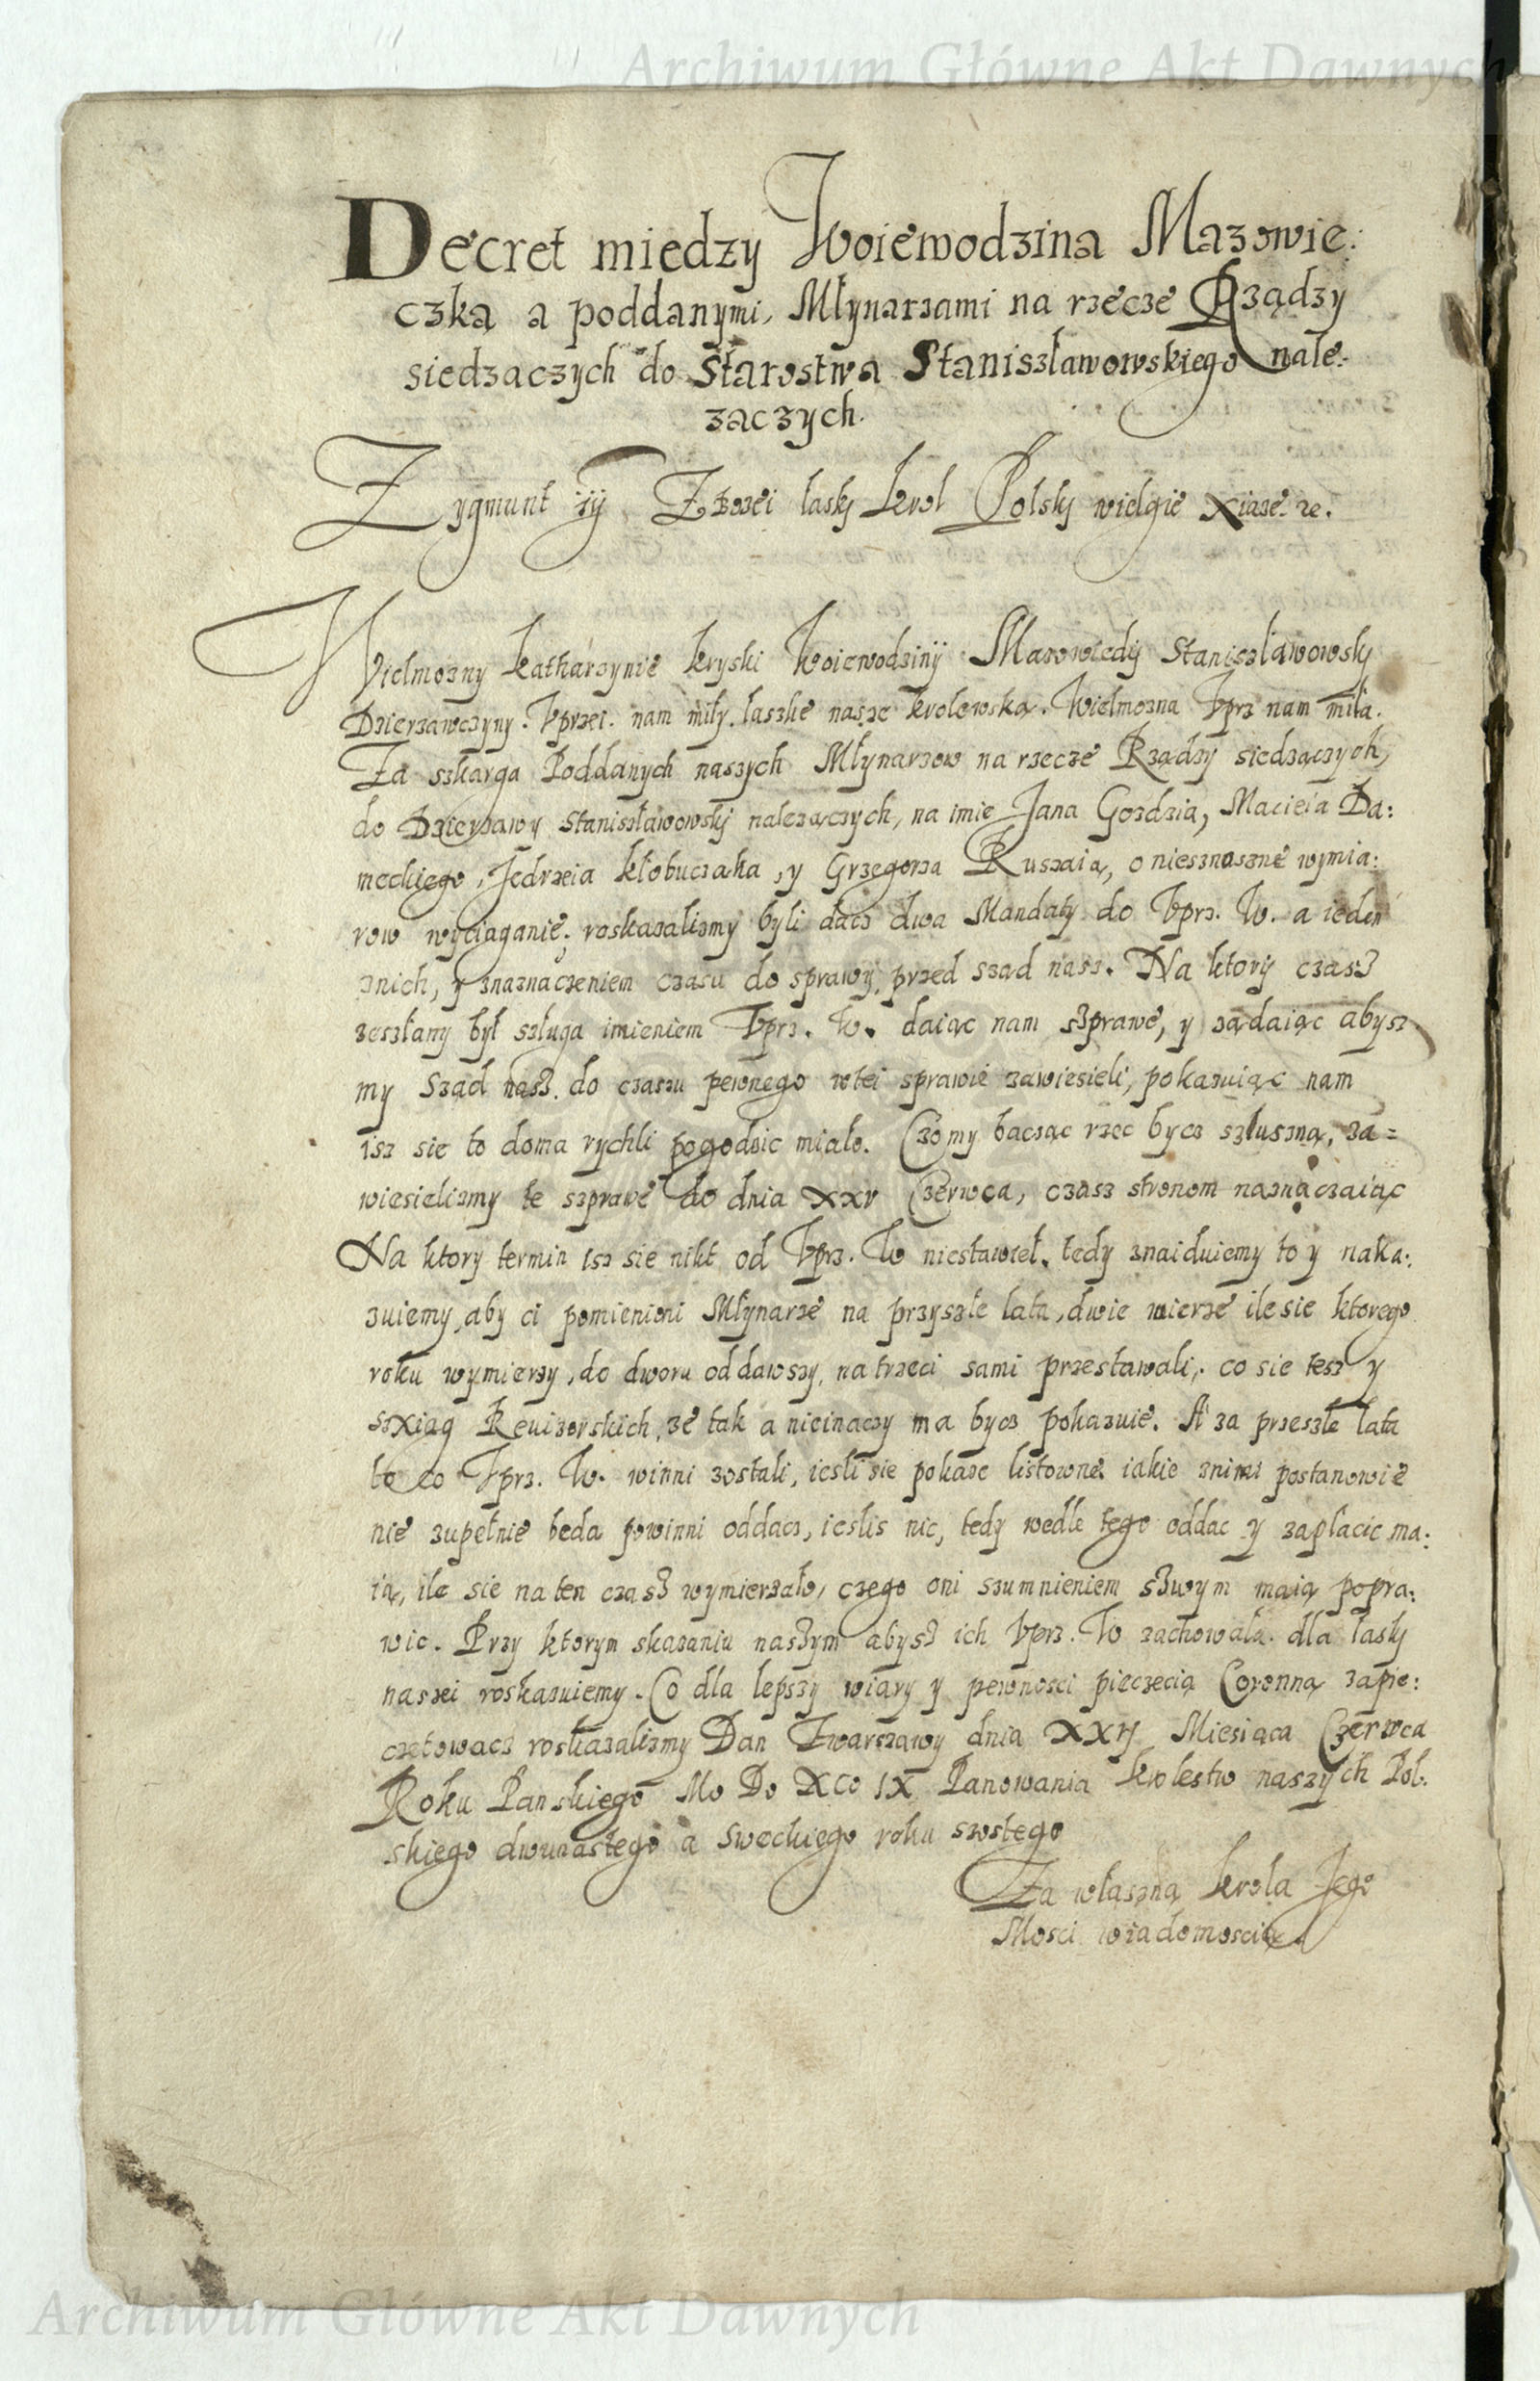 Archiwum Główne Akt Dawnych
Decret miedzy Woiewodzina Mazowie:
czka a poddanymi, Młynarzami na rzecze Rządzy
siedzaczych do Starostwa Staniszławowskiego nale:
zaczych.
Zygmunt iij Z bozei lasky krol Polsky wielgie xiaze ꝛc.
Wielmozny Katharzynie kryski Woiewodzinÿ Mazowiecky Staniszlawowsky
Dzierzawczyny. Vprzei. nam miły. laszke nasze krolewska. Wielmozna Vprz nam miła.
Za szkarga Poddanych naszych Młynarzow na rzecze Rządzy siedzączych,
do Dzierzawy Staniszławowsky nalezączych, na imie Jana Gozdzia, Macieia Da:
meckiego, Jedrzeia kłobuczaka, y Grzegorza Ruszaia, o niesznaszne wymia:
row wyciaganie; roskazalizmy byli dacz dwa Mandaty do Vprz. W. a ieden
znich, y znaznaczeniem czasu do sprawy, przed szad nasz. Na ktory czasz
zeszłany był szługa imieniem Vprz. W. daiąc nam szprawe, y ządaiąc abysz
my Szad nasz. do czaszu pewnego wtei sprawie zawiesieli, pokazuiąc nam
isz sie to doma rychli pogodzic miało. Czo my bacząc rzec bycz szłuszną, za=
wiesielizmy te szprawe do dnia xxv Czerwca, czasz stronom naznączaiąc
Na ktory termin isz sie nikt od Vprz. W niestawieł. tedy znaiduiemy to y naka:
zuiemy, aby ci pomienioni Młynarze na przyszłe lata, dwie mierze ile sie ktorego
roku wymierzy, do dworu oddawszy, na trzeci sami przestawali, co sie tesz y
szxiąg Reuizorskich, ze tak a nieinaczy ma bycz pokazuie. A za przeszłe lata
to co Vprz. W. winni zostali, iesli sie pokaze listowne iakie znimi postanowie
nie zupełnie beda powinni oddacz, ieslis nic, tedy wedle tego oddac y zaplacic ma:
ią, ile sie na ten czasz wymierzało, czego oni szumnieniem szwym maią popra:
wic. Przy ktorym skazaniu naszym abysz ich Vprz. W zachowała. dla łasky
naszei roskazuiemy. Co dla lepszy wiary y pewnosci pieczecią Coronną zapie:
czetowacz roskazalizmy Dan Zwarszawy dnia XXVJ Miesiąca Czerwca
Roku Panskiego Mo Do XCo IX Panowania krolestw naszych Pol:
skiego dwunastego a Sweckiego roku szostego
Za właszną krola Jego
Mosci wiadomoscią.
Archiwum Główne Akt Dawnych